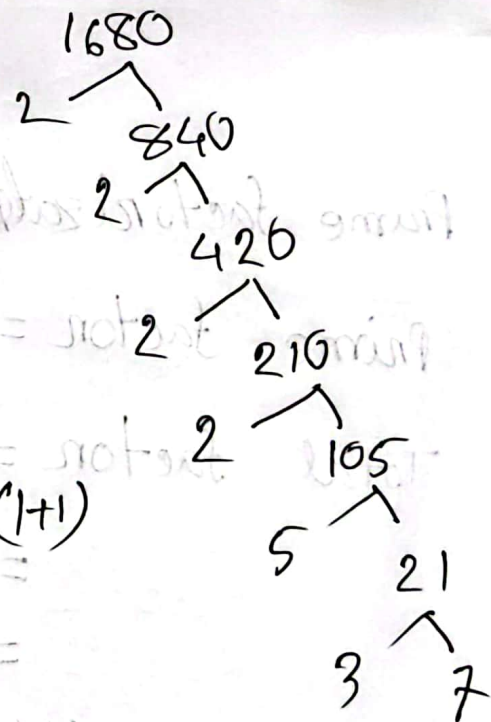 1680
2 840
2 420
2 210
2 105
(1+1)
5 21
=
3 7
=